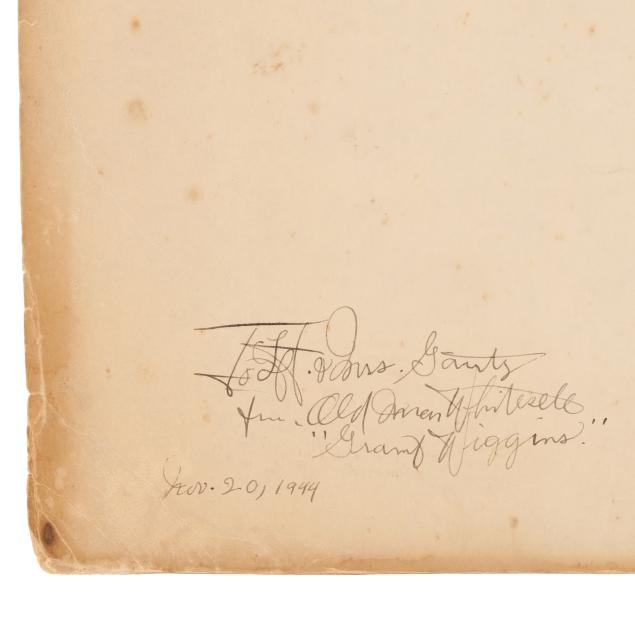 To Lt. & Mrs. Gantz
fm. Old Man Whitesell
"Gramp Wiggins."
Nov. 20, 1944